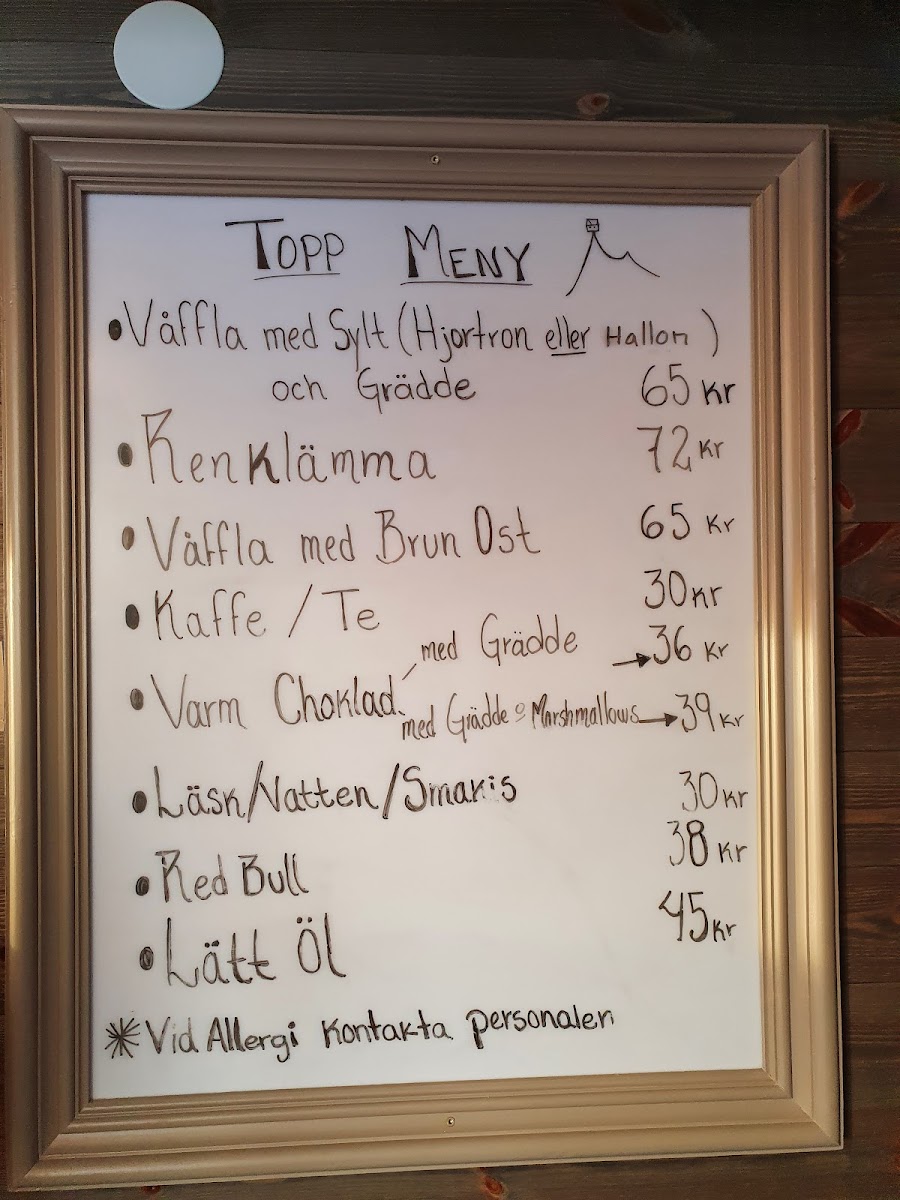 TOPP MENY
• Våffla med Sylt (Hjortron eller Hallon)
och Grädde 65 kr
• Renklämma 72 kr
• Våffla med Brun Ost 65 kr
• Kaffe / Te 30 kr
med Grädde → 36 kr
• Varm Choklad
med Grädde o Marshmallows → 39 kr
• Läsk/Vatten/Smakis 30 kr
• Red Bull 38 kr
• Lätt Öl 45 kr
* Vid Allergi kontakta personalen